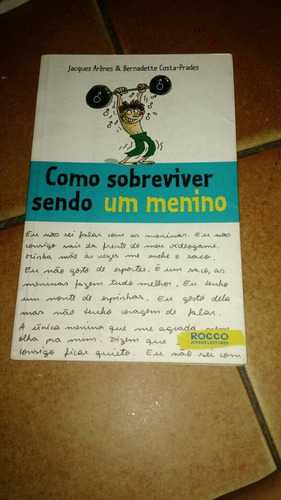 Jacques Arènes & Bernadette Costa-Prades
Como sobreviver
sendo um menino
Eu não sei falar com as meninas. Eu não
consigo sair da frente do meu videogame.
Minha mãe às vezes me enche o saco.
Eu não gosto de esportes. É um saco, as
meninas fazem tudo melhor. Eu tenho
um monte de espinhas. Eu gosto dela
mas não tenho coragem de falar.
A única menina que me agrada nem
olha pra mim. Dizem que
consigo ficar quieto. Eu não sei com
ROCCO
JOVENS LEITORES